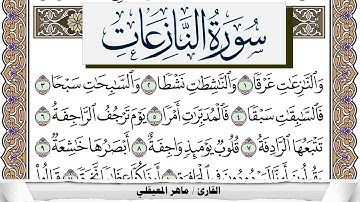 سُورَةُ النَّازِعَاتِ
وَالنَّٰزِعَٰتِ غَرْقًا ١ وَالنَّٰشِطَٰتِ نَشْطًا ٢ وَالسَّٰبِحَٰتِ سَبْحًا ٣
فَالسَّٰبِقَٰتِ سَبْقًا ٤ فَالْمُدَبِّرَٰتِ أَمْرًا ٥ يَوْمَ تَرْجُفُ الرَّاجِفَةُ ٦
تَتْبَعُهَا الرَّادِفَةُ ٧ قُلُوبٌ يَوْمَئِذٍ وَاجِفَةٌ ٨ أَبْصَٰرُهَا خَٰشِعَةٌ ٩
يَقُولُونَ أَءِنَّا لَمَرْدُودُونَ فِي
القارئ / ماهر المعيقلي